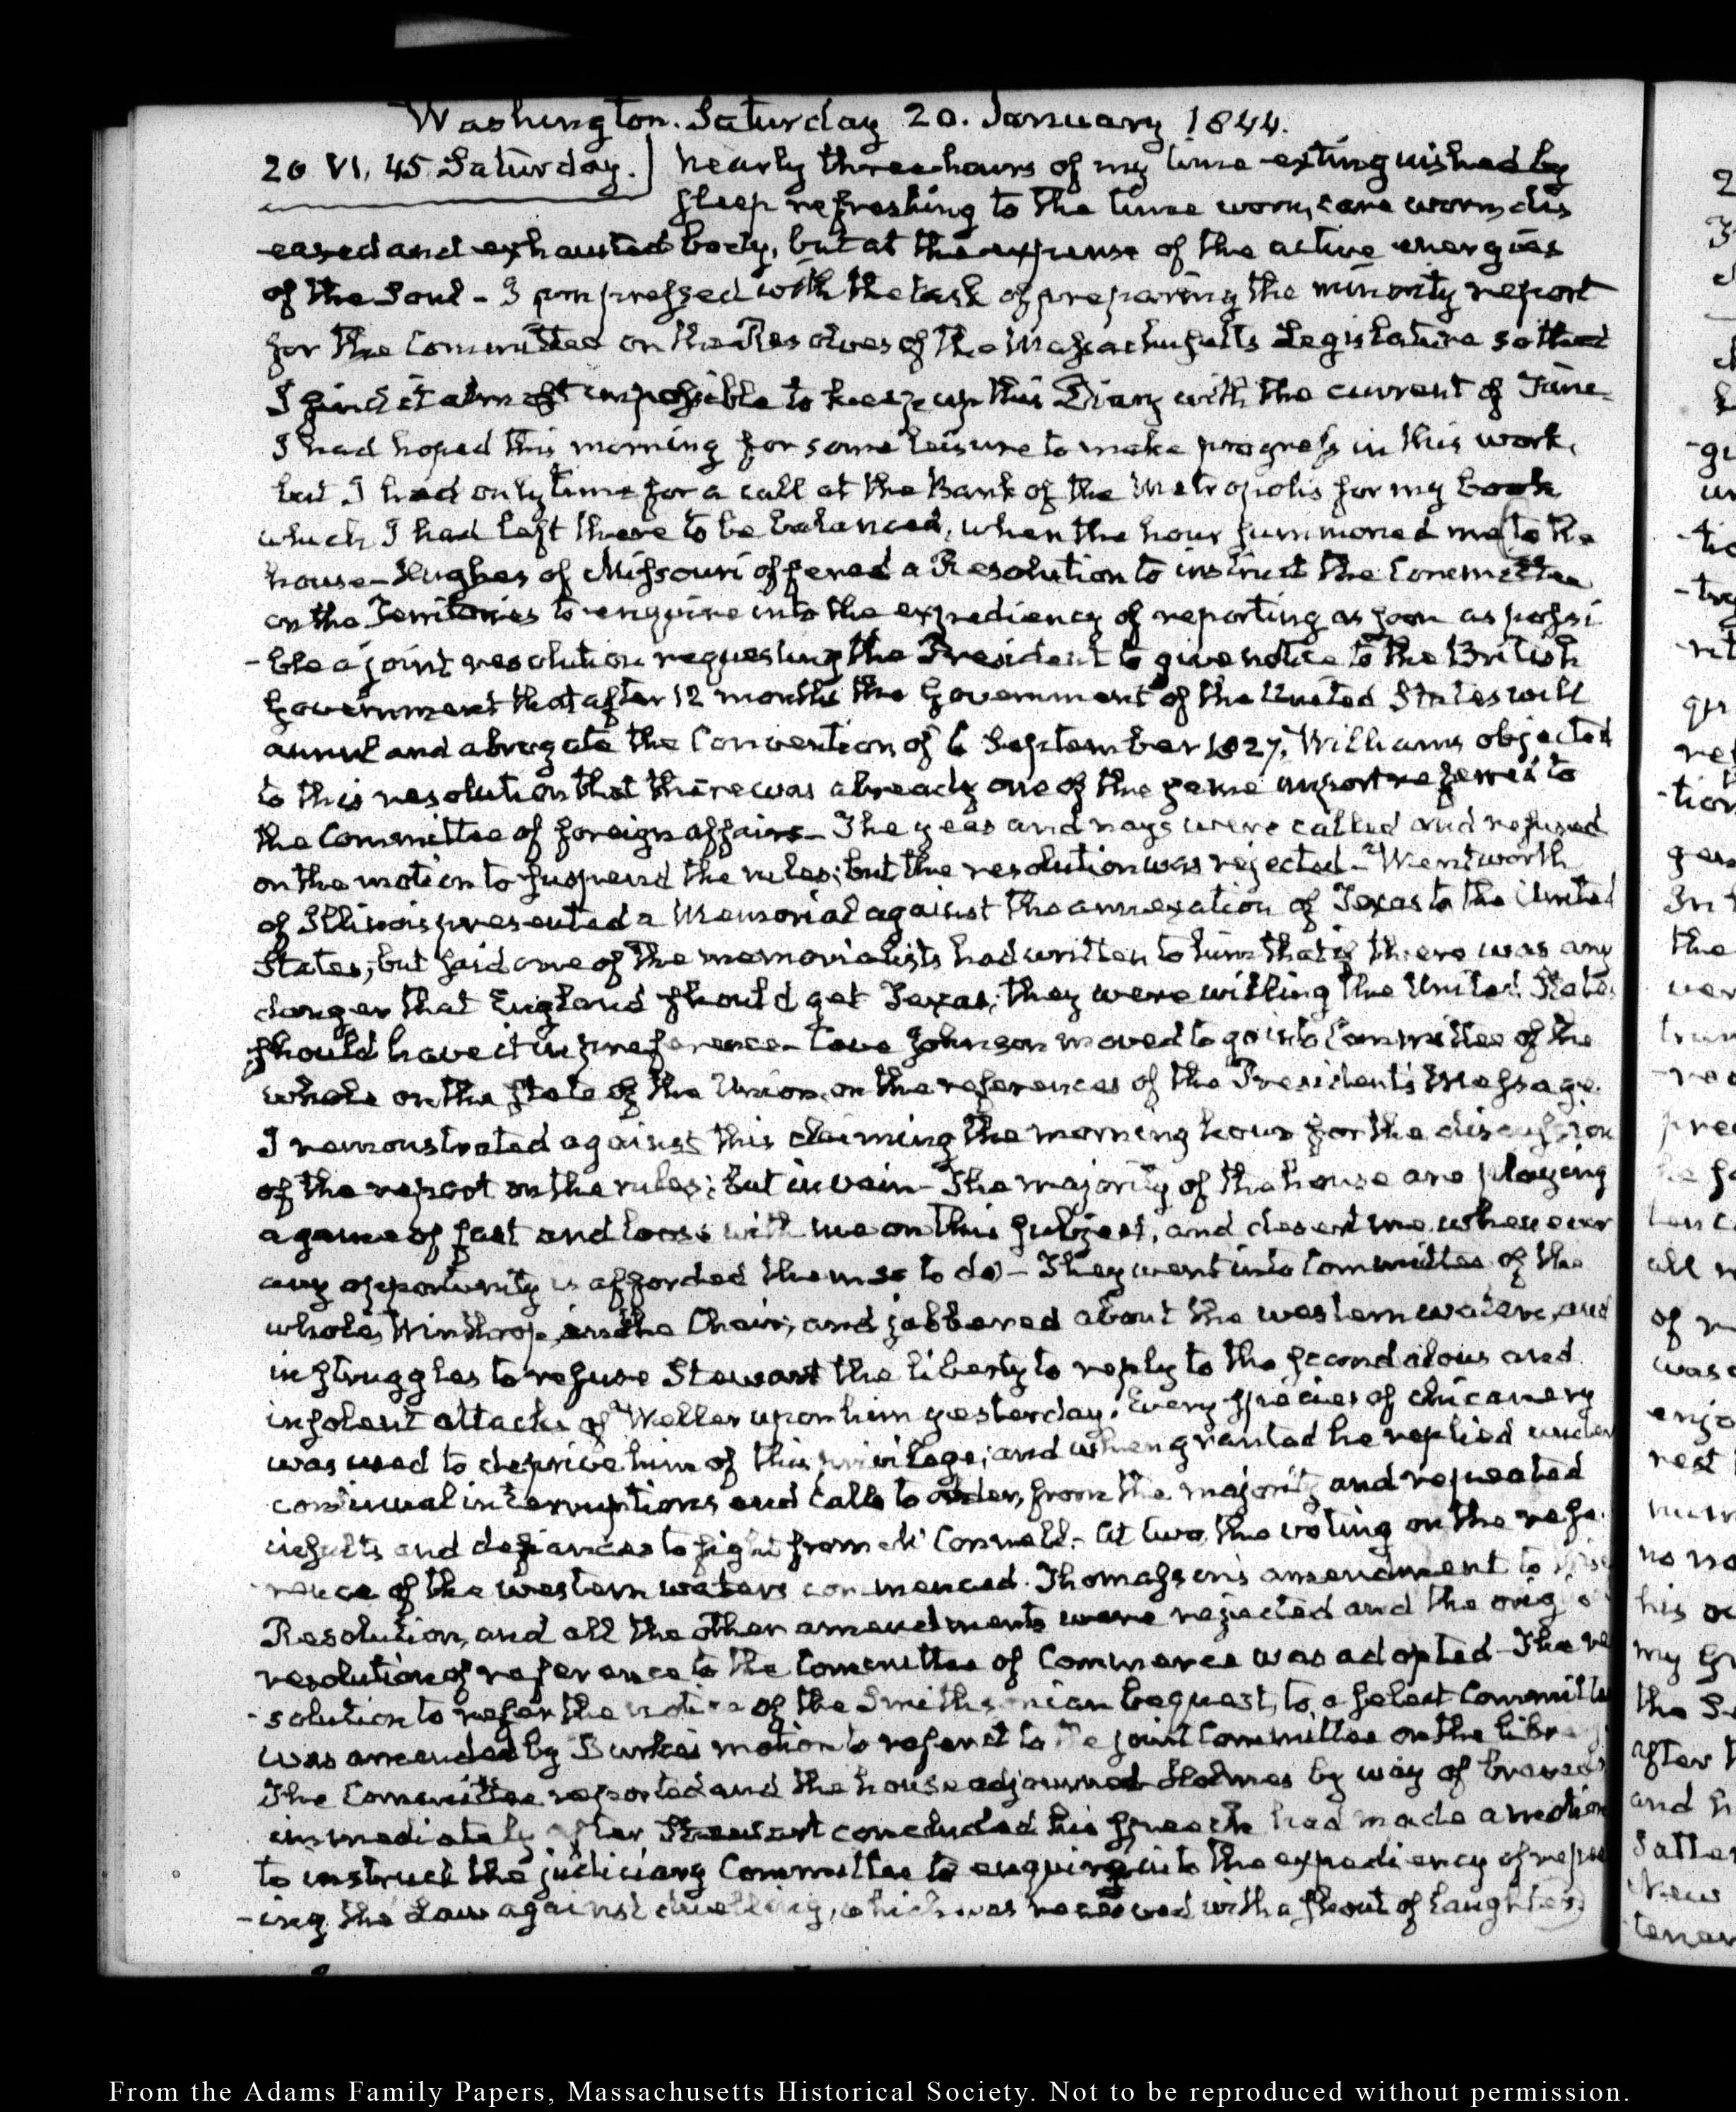 Washington. Saturday 20. January 1844.
20 VI, 45 Saturday. Nearly three hours of my time extinguished by
sleep refreshing to the time worn, care worn, dis
eased and exhausted body, but at the expense of the active energies
of the Soul - I am pressed with the task of preparing the minority report
for the Committee on the Resolves of the Massachusetts Legislature so that
I find it almost impossible to keep up this Diary with the current of Time-
I had hoped this morning for some leisure to make progress in this work,
but I had only time for a call at the Bank of the Metropolis for my book
which I had left there to be balanced, when the hour summoned me to the
house - Hughes of Missouri offered a Resolution to instruct the Committee
on the Territories to enquire into the expediency of reporting as soon as possi
-ble a joint resolution requesting the President to give notice to the British
Government that after 12 months the Government of the United States will
annul and abrogate the Convention of 6 September 1827. Williams objected
to this resolution that there was already one of the same import referred to
the Committee of foreign affairs - The yeas and nays were called and refused
on the motion to suspend the rules; but the resolution was rejected - Wentworth
of Illinois presented a Memorial against the annexation of Texas to the United
States; but said one of the memorialists had written to him that if there was any
danger that England should get Texas, they were willing the United States
should have it in preference - Cave Johnson moved to go into Committee of the
whole on the state of the Union, on the references of the President's Message.
I remonstrated against this claiming the morning hour for the discussion
of the report on the rules; but in vain - The majority of the house are playing
a game of fast and loose with me on this subject, and desert me whenever
any opportunity is afforded them so to do - They went into Committee of the
whole, Winthrop in the Chair, and jabbered about the western waters, and
in struggles to refuse Stewart the liberty to reply to the scandalous and
insolent attacks of Weller upon him yesterday. Every species of chicanery
was used to deprive him of this privilege; and when granted he replied under
continual interruptions and calls to order, from the majority and repeated
insults and defiances to fight from Mc Connell. - At two, the voting on the refe
-rence of the western waters commenced. Thomasson's amendment to
Resolution, and all the other amendments were rejected and the
resolution of reference to the Committee of Commerce was adopted - The re
-solution to refer the notice of the Smithsonian bequest, to a select Committee
was amended by Burke's motion to refer it to the joint Committee on the
The Committee reported and the house adjourned - Holmes by way of
immediately after Stewart concluded his speech had made a motion
to instruct the judiciary Committee to enquire into the expediency of repeal
-ing the Law against duelling, which was received with a shout of laughter
From the Adams Family Papers, Massachusetts Historical Society. Not to be reproduced without permission.